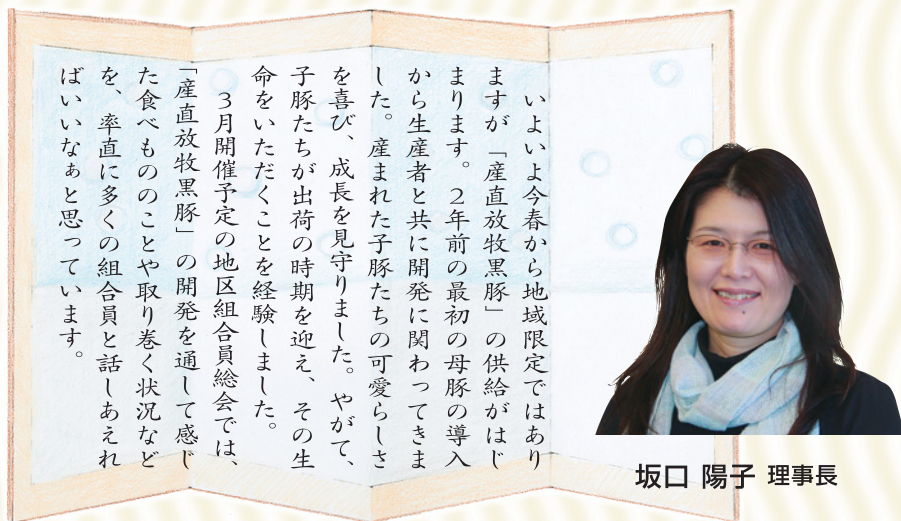 いよいよ今春から地域限定ではあり
ますが「産直放牧黒豚」の供給がはじ
まります。２年前の最初の母豚の導入
から生産者と共に開発に関わってきま
した。産まれた子豚たちの可愛らしさ
を喜び、成長を見守りました。やがて、
子豚たちが出荷の時期を迎え、その生
命をいただくことを経験しました。
３月開催予定の地区組合員総会では、
「産直放牧黒豚」の開発を通して感じ
た食べもののことや取り巻く状況など
を、率直に多くの組合員と話しあえれ
ばいいなぁと思っています。
坂口 陽子 理事長